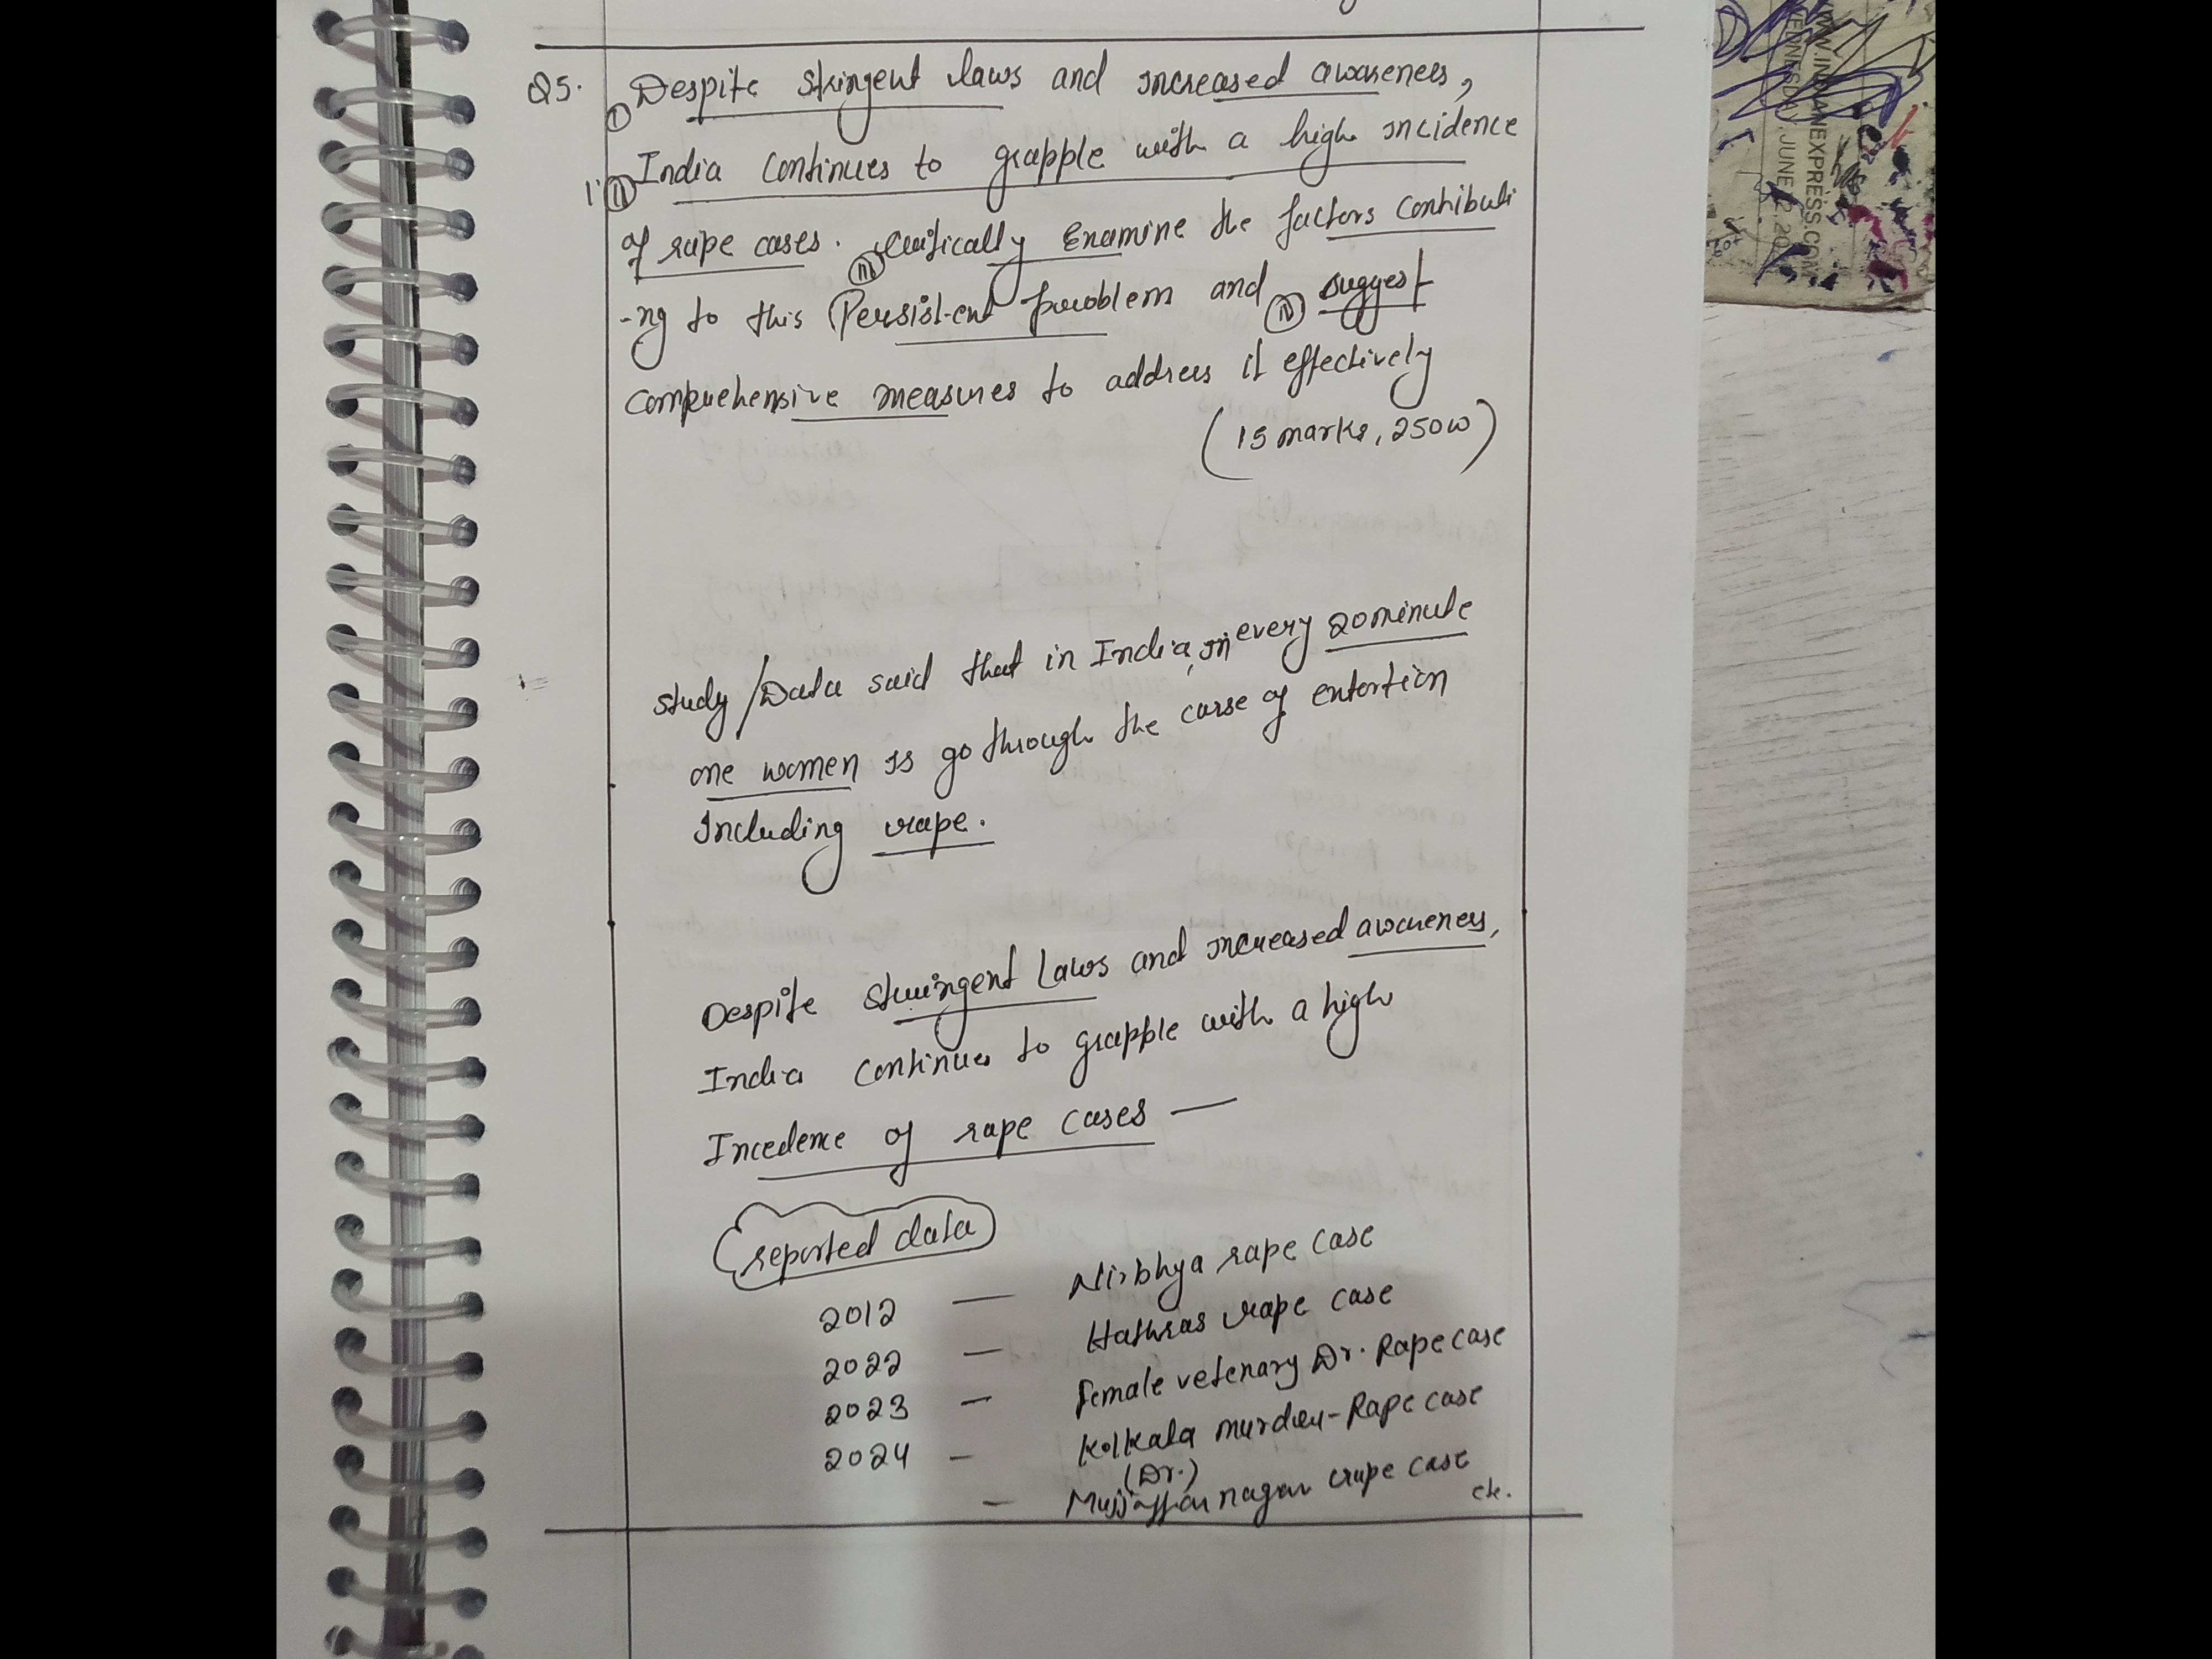 Q5. Despite stringent laws and increased awareness,
India continues to grapple with a high incidence
of rape cases. critically Examine the factors contributi
-ng to this Persist-ent problem and suggest
comprehensive measures to address it effectively
(15 marks, 250w)
study/Data said that in India, in every 20minute
one women is go through the curse of extortion
Including rape.
Despite stringent Laws and increased awareness,
India continues to grapple with a high
Incedence of rape cases —
reported data
2012 — Nirbhya rape case
2022 — Hathras rape case
2023 — female vetenary Dr. Rape case
2024 - Kolkata murder-Rape case
(Dr.)
— Mujjaffar nagar rape case etc.
WWW.INDIANEXPRESS.COM
WEDNESDAY, JUNE 12, 20